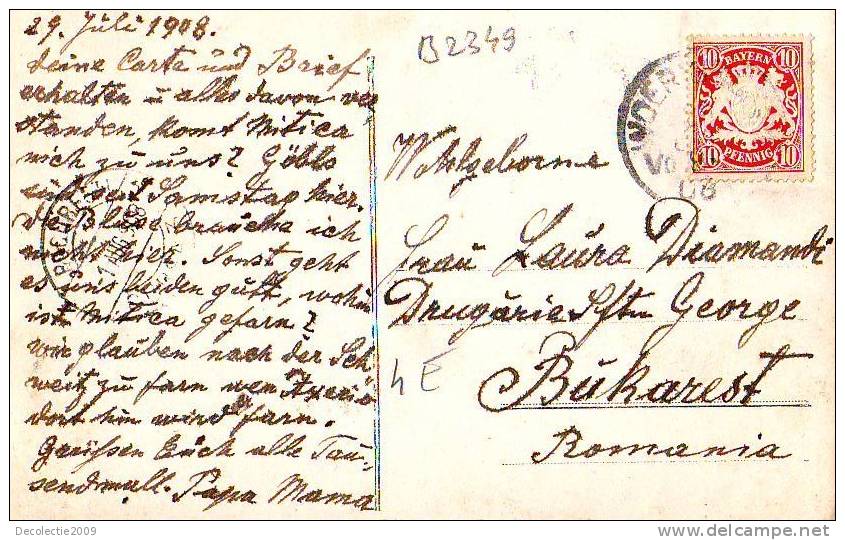 29. Juli 1908.
Deine Carte und Brief
erhalten u alles davon ver
standen, komt Mitica
nich zu uns? Göbls
sind seit Samstag hier.
die Bluse brauche ich
nicht hier. Sonst geht
es uns beiden gutt, wohin
ist Mitica gefarn?
wir glauben nach der Sch
weitz zu farn wen
dort hin wird farn.
Grüssen Euch alle Tau-
sendmall. Papa Mama
B2349
BAYERN
10 10
10 PFENNIG 10
Wohlgeborne
Frau Laura Diamandi
Drugărie Sftu George
Bukarest
Romania
4 E
Decolectie2009
delcampe.net